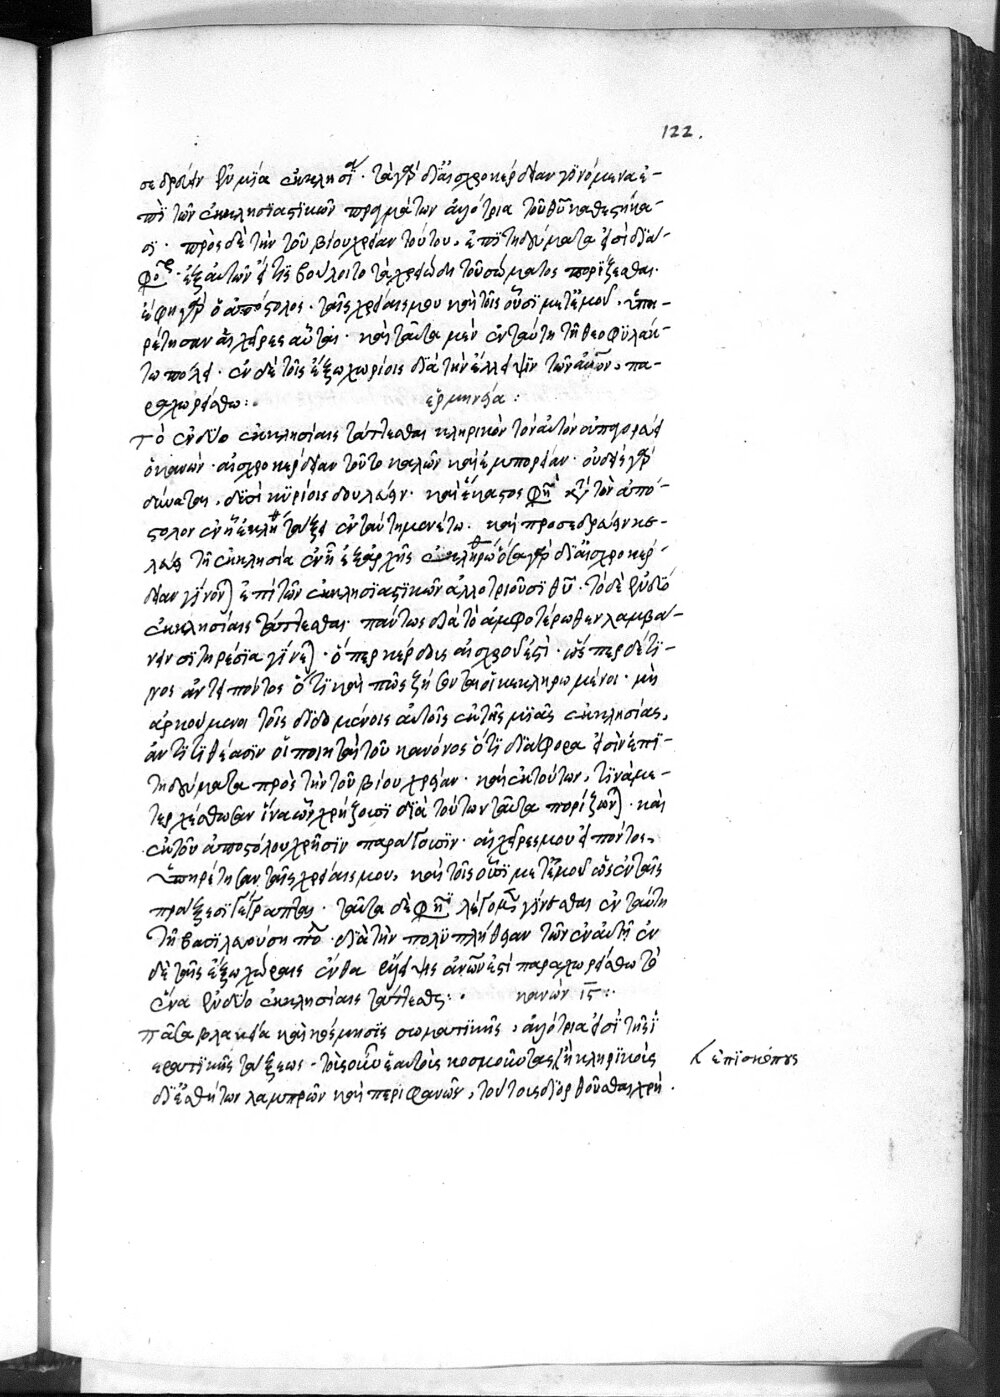 122.
σεδρεύειν ἐν μιᾷ ἐκκλησίᾳ. τὰ γὰρ δι' αἰσχροκέρδειαν γινόμενα ἐ-
πὶ τῶν ἐκκλησιαστικῶν πραγμάτων ἀλλότρια τοῦ θῦ καθεστήκα-
σι. πρὸς δὲ τὴν τοῦ βίου χρείαν τούτου, ἐπιτηδεύματα εἰσὶ διά-
φορα. ἐξ αὐτῶν εἴ τις βούλοιτο τὰ χρειώδη τοῦ σώματος ποριζέσθω.
ἔφη γὰρ ὁ ἀπόστολος. ταῖς χρείαις μου καὶ τοῖς οὖσι μετ' ἐμοῦ, ὑπη-
ρέτησαν αἱ χεῖρες αὗται. καὶ ταῦτα μὲν ἐν ταύτῃ τῇ θεοφυλάκ-
τῳ πόλει. ἐν δὲ τοῖς ἔξω χωρίοις διὰ τὴν ἔλλειψιν τῶν ἀνῶν, πα-
ραχωρείσθω:. ἑρμηνεία:
Τὸ ἐν δύο ἐκκλησίαις τάττεσθαι κληρικὸν τὸν αὐτὸν ἀπαγορεύει
ὁ κανών. αἰσχροκέρδειαν τοῦτο καλῶν καὶ ἐμπορίαν. οὐδεὶς γὰρ
δύναται, δυσὶ κυρίοις δουλεύειν. καὶ ἕκαστος φησὶ κατὰ τὸν ἀπό-
στολον ἐν ᾗ ἐκλήθη τάξει ἐν ταύτῃ μενέτω. καὶ προσεδρεύειν κε-
λεύει τῇ ἐκκλησίᾳ ἐν ᾗ ἐξ ἀρχῆς ἐκληρώθη τὰ γὰρ δι' αἰσχροκέρ-
δειαν γινόν) ἐπὶ τῶν ἐκκλησιαστικῶν ἀλλοτριοῦσι θῦ. τὸ δὲ ἐν δυσὶ
ἐκκλησίαις τάττεσθαι πάντως διὰ τὸ ἀμφοτέρωθεν λαμβά-
νειν σιτηρέσια γίνε). ὅπερ κέρδος αἰσχρόν ἐστι. ὥσπερ δέ τι-
νος ἀντειπόντος ὅτι καὶ πῶς ζήσονται οἱ κεκληρωμένοι. μὴ
ἀρκούμενοι τοῖς διδομένοις αὐτοῖς ἐκ τῆς μιᾶς ἐκκλησίας,
ἀντιτιθέασιν οἱ ποιηταὶ τοῦ κανόνος ὅτι διάφορα εἰσὶν ἐπι-
τηδεύματα πρὸς τὴν τοῦ βίου χρείαν. καὶ ἐκ τούτων, τινὰ με-
τερχέσθωσαν ἵνα ὧν χρήζουσι διὰ τούτων ταῦτα πορίζων). καὶ
ἐκ τοῦ ἀποστόλου χρῆσιν παράγουσιν. αἱ χεῖρες μου εἰπόντος,
ὑπηρέτησαν ταῖς χρείαις μου, καὶ τοῖς οὖσι μετ' ἐμοῦ ὡς ἐν ταῖς
πράξεσι γέγραπται. ταῦτα δὲ φησὶ λέγομεν γίνεσθαι ἐν ταύτῃ
τῇ βασιλευούσῃ πόλει διὰ τὴν πολυπλήθειαν τῶν ἐν αὐτῇ ἐν
δὲ ταῖς ἔξω χώραις ἔνθα ἔλλειψις ἀνῶν ἐστὶ παραχωρείσθω τὸ
ἕνα ἐν δύο ἐκκλησίαις τάττεσθαι:. κανὼν ις:
Πᾶσα βλακεία καὶ κόσμησις σωματικῆς, ἀλλότρια εἰσὶ τῆς ἱ-
ερατικῆς τάξεως. τοὺς οὖν ἑαυτοὺς κοσμοῦντας ἢ κληρικοὺς
ἐπισκόπους
δι' ἐσθήτων λαμπρῶν καὶ περιφανῶν, τούτους διορθοῦσθαι χρή.